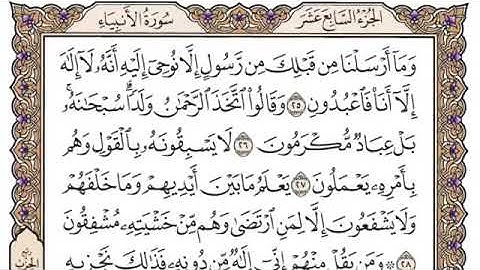 سُورَةُ الأَنْبِيَاءِ الجُزْءُ السَّابِعَ عَشَرَ
وَمَآ أَرْسَلْنَا مِن قَبْلِكَ مِن رَّسُولٍ إِلَّا نُوحِىٓ إِلَيْهِ أَنَّهُۥ لَآ إِلَٰهَ
إِلَّآ أَنَا۠ فَٱعْبُدُونِ ٢٥ وَقَالُوا۟ ٱتَّخَذَ ٱلرَّحْمَٰنُ وَلَدًا ۗ سُبْحَٰنَهُۥ ۚ
بَلْ عِبَادٌ مُّكْرَمُونَ ٢٦ لَا يَسْبِقُونَهُۥ بِٱلْقَوْلِ وَهُم
بِأَمْرِهِۦ يَعْمَلُونَ ٢٧ يَعْلَمُ مَا بَيْنَ أَيْدِيهِمْ وَمَا خَلْفَهُمْ
وَلَا يَشْفَعُونَ إِلَّا لِمَنِ ٱرْتَضَىٰ وَهُم مِّنْ خَشْيَتِهِۦ مُشْفِقُونَ
٢٨ وَمَن يَقُلْ مِنْهُمْ إِنِّىٓ إِلَٰهٌ مِّن دُونِهِۦ فَذَٰلِكَ نَجْزِيهِ
ربع
الحزب